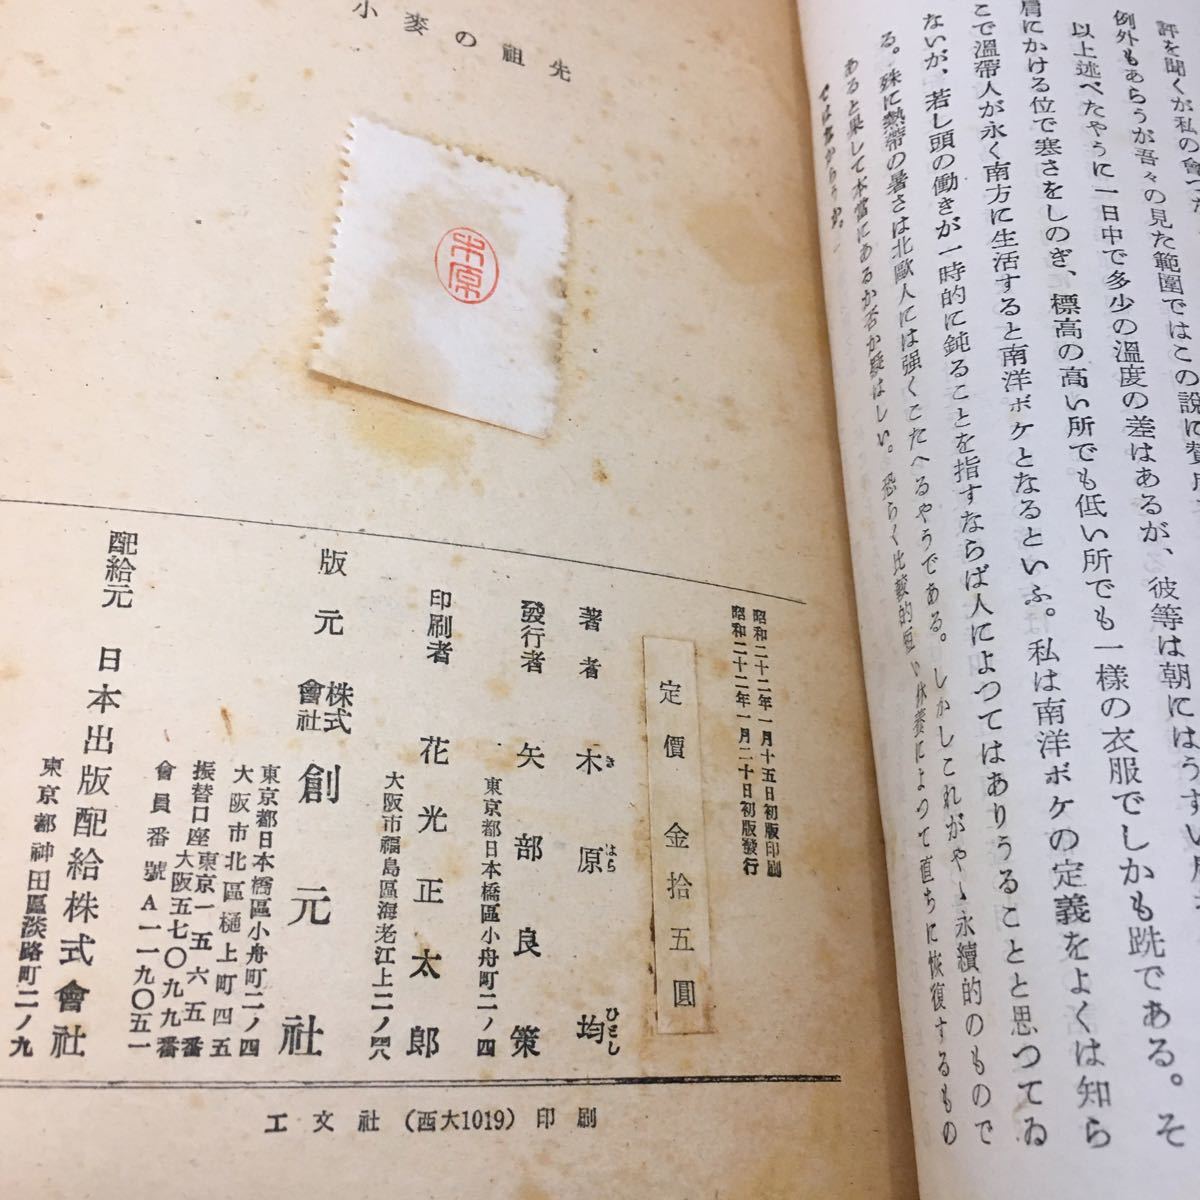 評を聞くが私の會つた
例外もあらうが吾々の見た範圍ではこの說に贊成
以上述べたやうに一日中で多少の溫度の差はあるが、彼等は朝にはうすい
肩にかける位で寒さをしのぎ、標高の高い所でも低い所でも一樣の衣服でしかも跣である。そ
こで溫帶人が永く南方に生活すると南洋ボケとなるといふ。私は南洋ボケの定義をよくは知ら
ないが、若し頭の働きが一時的に鈍ることを指すならば人によつてはありうることと思つてゐ
る。殊に熱帶の暑さは北歐人には强くこたへるやうである。しかしこれがやゝ永續的のもので
あると果して本當にあるか否か疑はしい。恐らく比較的短い休養によつて直ちに恢復するもの
ではなからうか。
小麥の祖先
木原
昭和二十二年一月十五日初版印刷
昭和二十二年一月二十日初版發行
定價 金拾五圓
著者 木原 均
き はら ひとし
發行者 矢部良策
東京都日本橋區小舟町二ノ四
印刷者 花光正太郎
大阪市福島區海老江上二ノ四八
版元 株式會社 創元社
東京都日本橋區小舟町二ノ四
大阪市北區樋上町四五
振替口座 東京一五六五番
大阪五七〇九九番
會員番號 A一一九〇五一
配給元 日本出版配給株式會社
東京都神田區淡路町二ノ九
工文社 (西大1019) 印刷